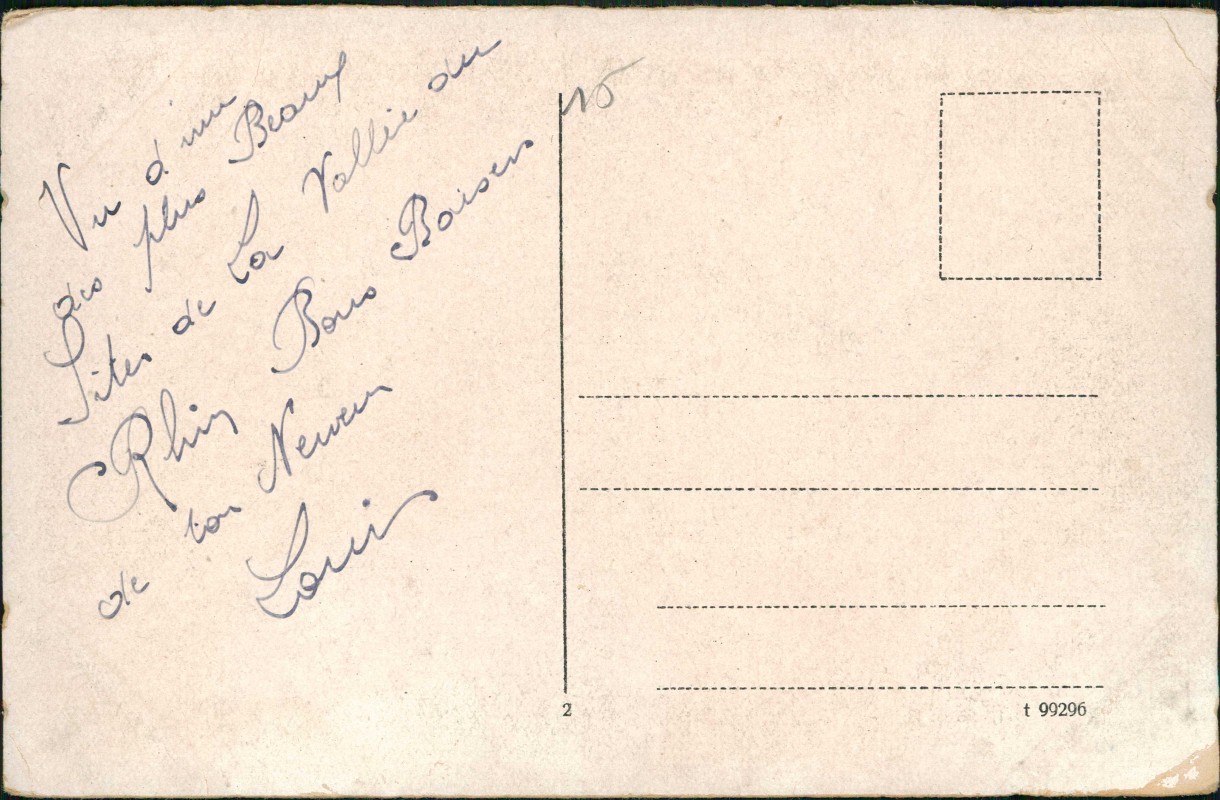 Vu d'une
des plus Beaux
Sites de La Vallée du
Rhin Bons Baisers
de ton Neveu
Louis
15
2
t 99296